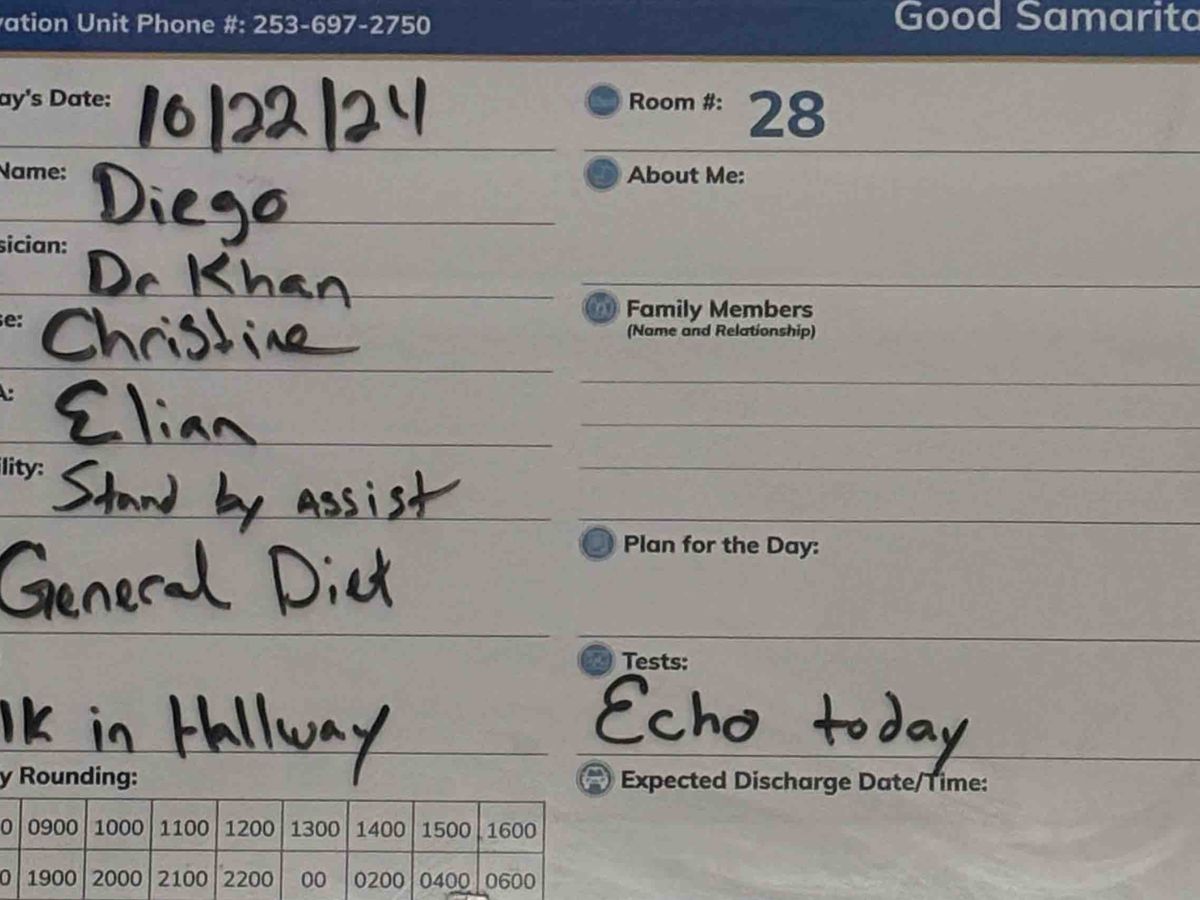 vation Unit Phone #: 253-697-2750
Good Samarita
ay's Date: 10/22/24
Name: Diego
sician: Dr Khan
se: Christine
A: Elian
ility: Stand by Assist
General Diet
lk in Hallway
y Rounding:
0 0900 1000 1100 1200 1300 1400 1500 1600
0 1900 2000 2100 2200 00 0200 0400 0600
Room #: 28
About Me:
Family Members
(Name and Relationship)
Plan for the Day:
Tests:
Echo today
Expected Discharge Date/Time: